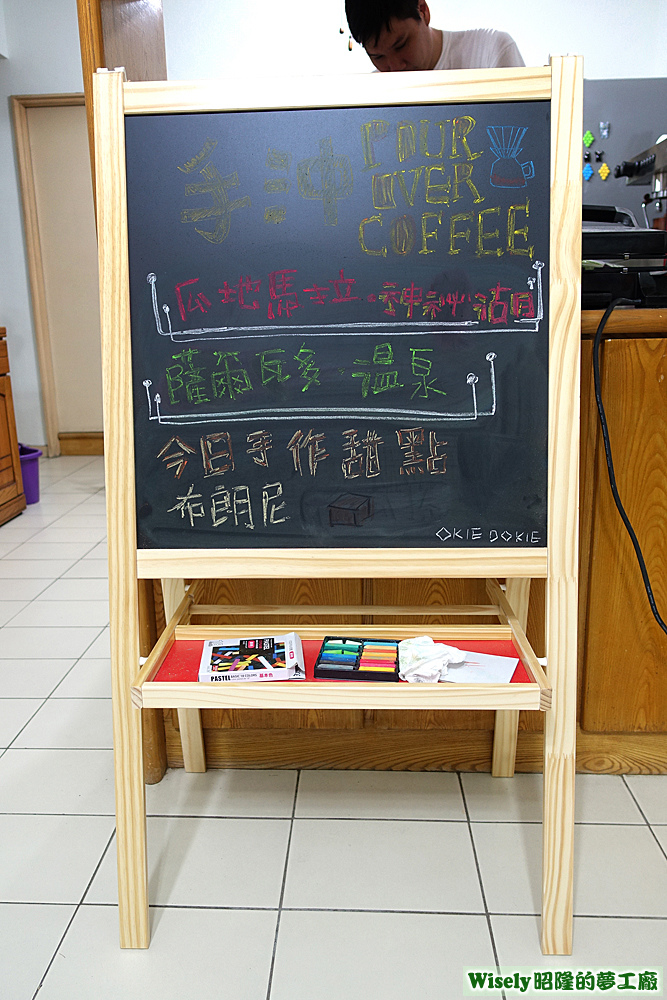 手冲 POUR OVER COFFEE
瓜地馬拉·神祕沽目
薩爾瓦多·溫泉
今日手作甜點
布朗尼
OKIE DOKIE
PASTEL
基本色
Wisely昭隆的夢工廠